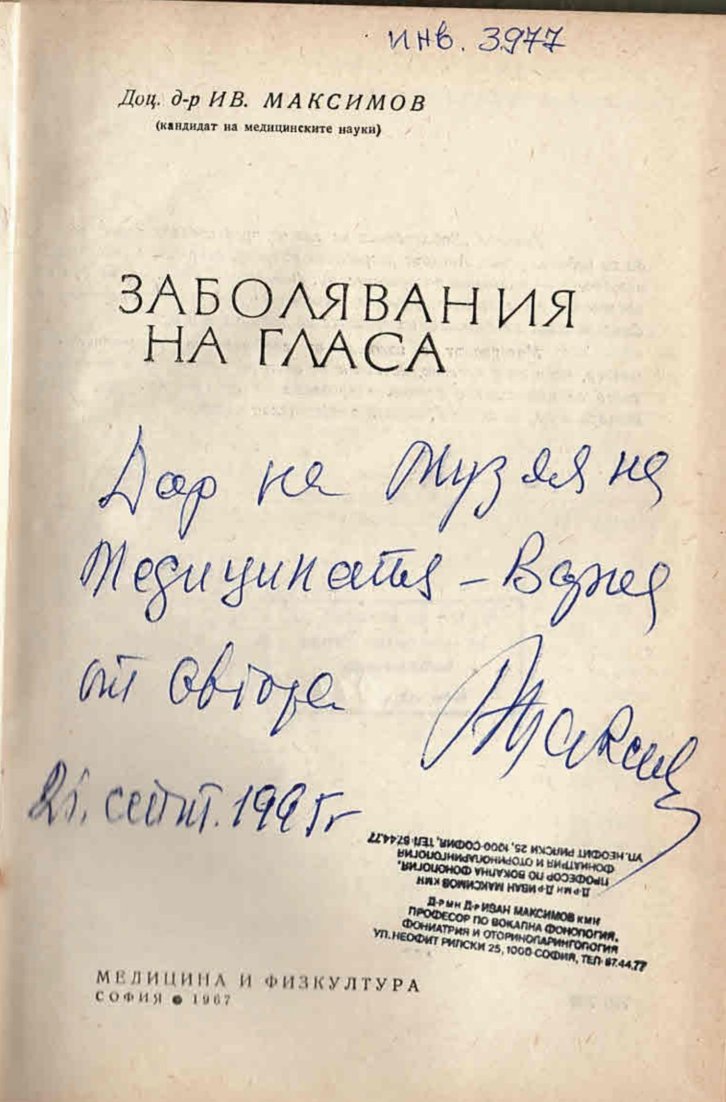 инв. 3977
Доц. д-р ИВ. МАКСИМОВ
(кандидат на медицинските науки)
ЗАБОЛЯВАНИЯ
НА ГЛАСА
Дар на Музея на
Медицината – Варна
от автора
21. септ. 1995 г
Д-р мн Д-р ИВАН МАКСИМОВ кмн
ПРОФЕСОР ПО ВОКАЛНА ФОНОЛОГИЯ,
ФОНИАТРИЯ И ОТОРИНОЛАРИНГОЛОГИЯ
УЛ. НЕОФИТ РИЛСКИ 25, 1000 СОФИЯ, ТЕЛ. 87.44.77
Д-р мн Д-р ИВАН МАКСИМОВ кмн
ПРОФЕСОР ПО ВОКАЛНА ФОНОЛОГИЯ,
ФОНИАТРИЯ И ОТОРИНОЛАРИНГОЛОГИЯ
УЛ. НЕОФИТ РИЛСКИ 25, 1000 СОФИЯ, ТЕЛ. 87.44.77
МЕДИЦИНА И ФИЗКУЛТУРА
СОФИЯ ● 1967